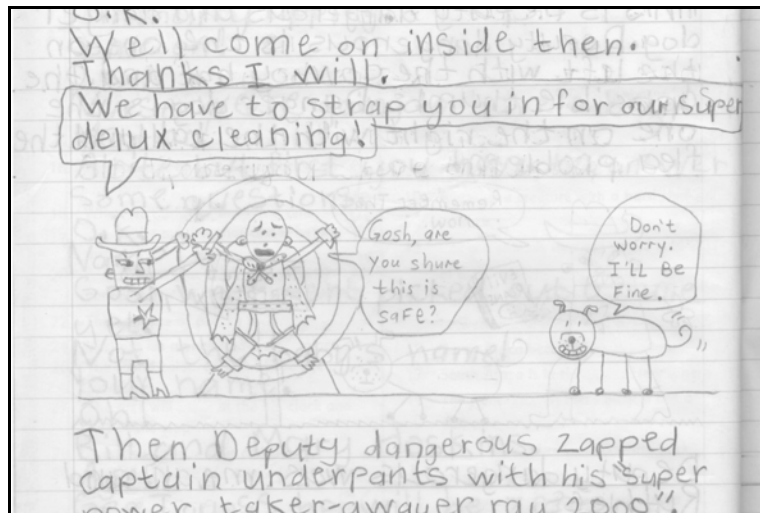 O.K.
Well come on inside then.
Thanks I will.
We have to strap you in for our super
delux cleaning!
Gosh, are
you shure
this is
safe?
Don't
worry.
I'll Be
Fine.
Then Deputy dangerous zapped
captain underpants with his "super
power taker-awayer ray 2000".